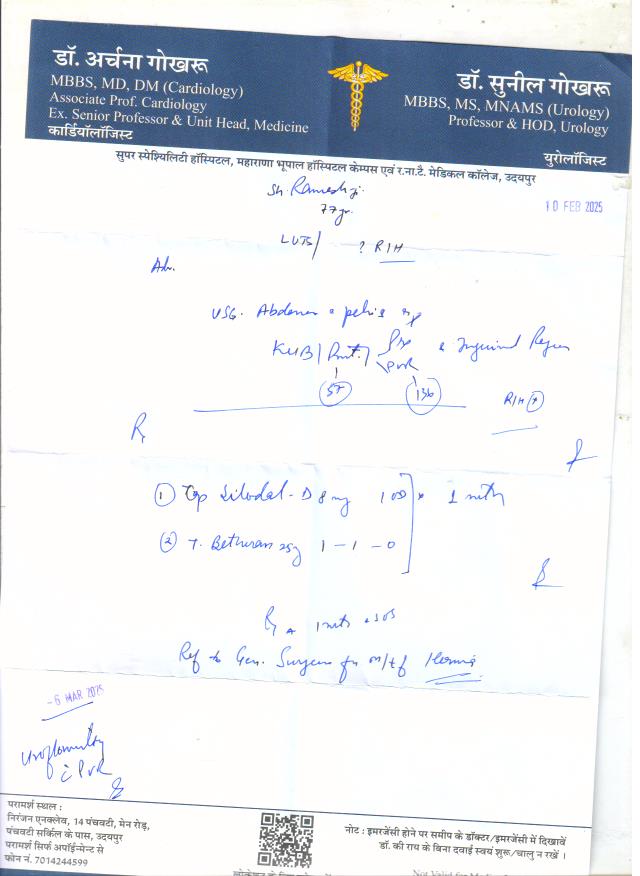 डॉ. अर्चना गोखरू
MBBS, MD, DM (Cardiology)
Associate Prof. Cardiology
Ex. Senior Professor & Unit Head, Medicine
कार्डियॉलॉजिस्ट
डॉ. सुनील गोखरू
MBBS, MS, MNAMS (Urology)
Professor & HOD, Urology
यूरोलॉजिस्ट
सुपर स्पेश्यिलिटी हॉस्पिटल, महाराणा भूपाल हॉस्पिटल केम्पस एवं र.ना.टै. मेडिकल कॉलेज, उदयपुर
Sh. Rameshji
77yr.
10 FEB 2025
LUTS/ ? RIH
Adv.
USG. Abdomen & pelvis
KUB/Prost./ & Inguinal Region
PVR
57 136 RIH +
R
1 Cap Silodal-D 8mg x 1 mth
2 T. Bethuran 25g 1-1-0
1 mth SOS
Ref to Gen. Surgeon for Hernia
-6 MAR 2025
Uroflowmetry
c PVR
परामर्श स्थल :
निरंजन एनक्लेव, 14 पंचवटी, मेन रोड़,
पंचवटी सर्किल के पास, उदयपुर
परामर्श सिर्फ अपॉईन्मेन्ट से
फोन नं. 7014244599
नोट : इमरजेंसी होने पर समीप के डॉक्टर/इमरजेंसी में दिखावें
डॉ. की राय के बिना दवाई स्वयं शुरू/चालु न रखें ।